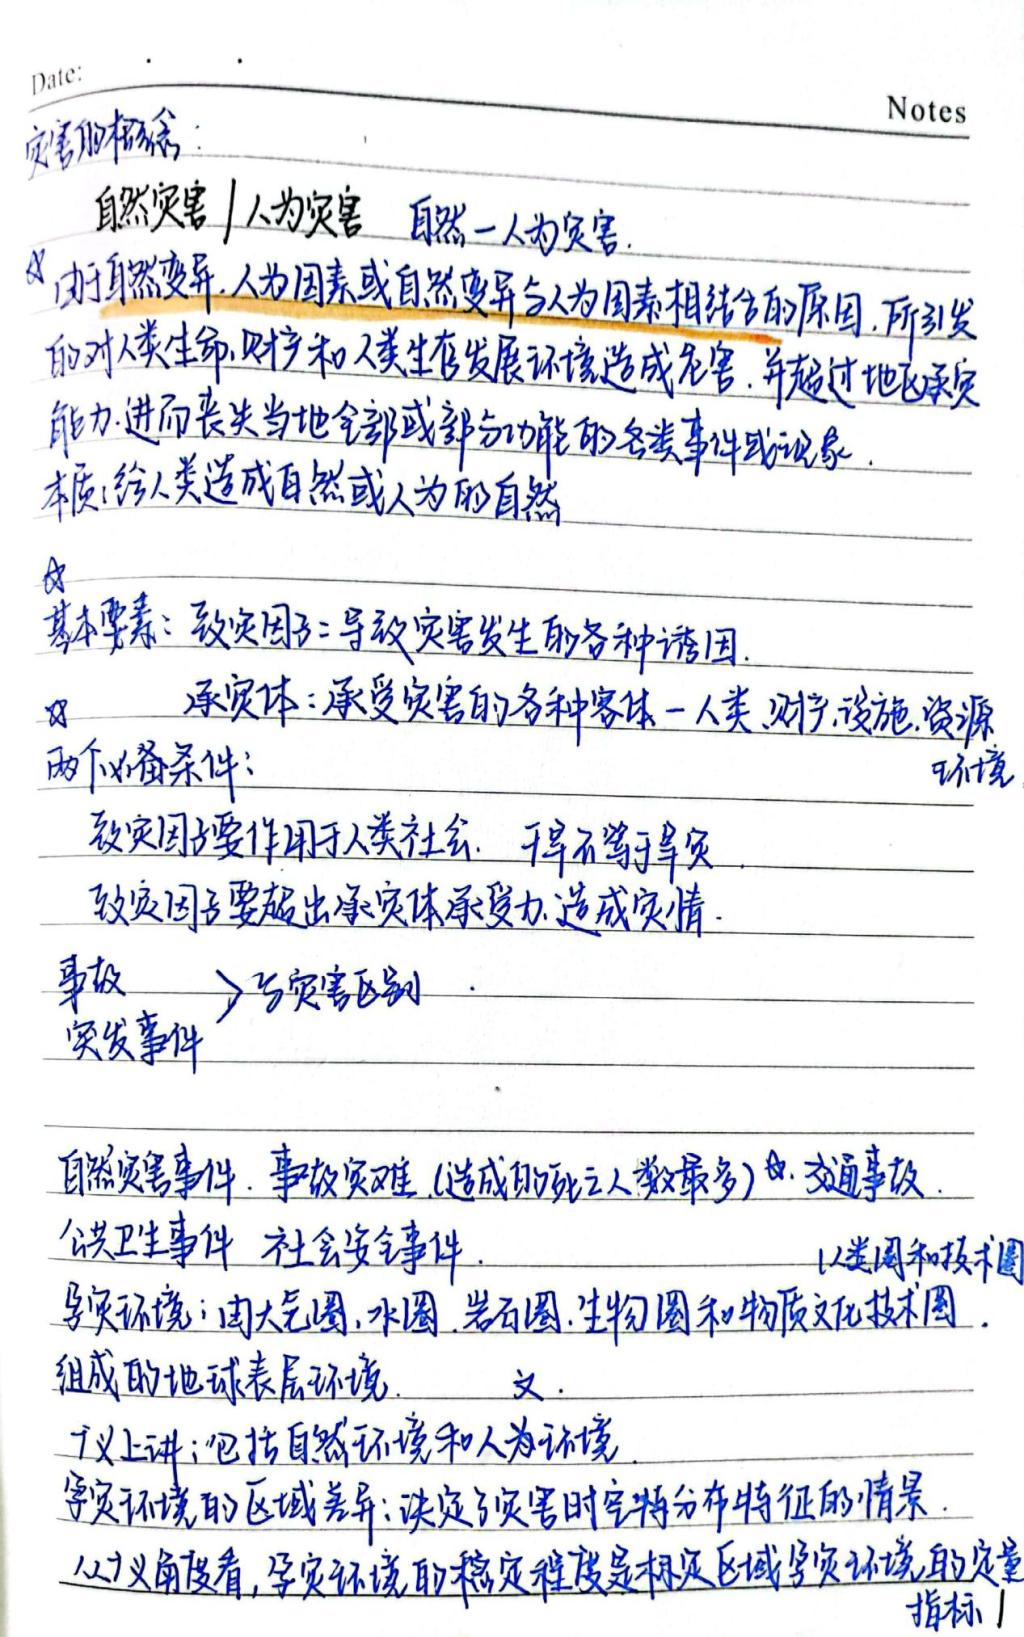 Date:
Notes
灾害的概念:
自然灾害/人为灾害 自然一人为灾害.
☆由于自然变异.人为因素或自然变异与人为因素相结合的原因,所引发
的对人类生命、财产和人类生存发展环境造成危害.并超过地区承灾
能力.进而丧失当地全部或部分功能的各类事件或现象.
本质:给人类造成自然或人为的自然
☆
基本要素:致灾因子:导致灾害发生的各种诱因.
☆ 承灾体:承受灾害的各种客体一人类.财产、设施.资源
环境
两个必备条件:
致灾因子要作用于人类社会. 干旱不等于旱灾.
致灾因子要超出承灾体承受力.造成灾情.
事故
突发事件 > 与灾害区别
自然灾害事件. 事故灾难.(造成的死亡人数最多)☆.交通事故.
公共卫生事件 社会安全事件.
人类圈和技术圈
孕灾环境:由大气圈、水圈.岩石圈.生物圈和物质文化技术圈.
组成的地球表层环境. 文.
广义上讲:包括自然环境和人为环境
孕灾环境的区域差异:决定了灾害时空特分布特征的情景.
从广义角度看,孕灾环境的稳定程度是标定区域孕灾环境的定量
指标/